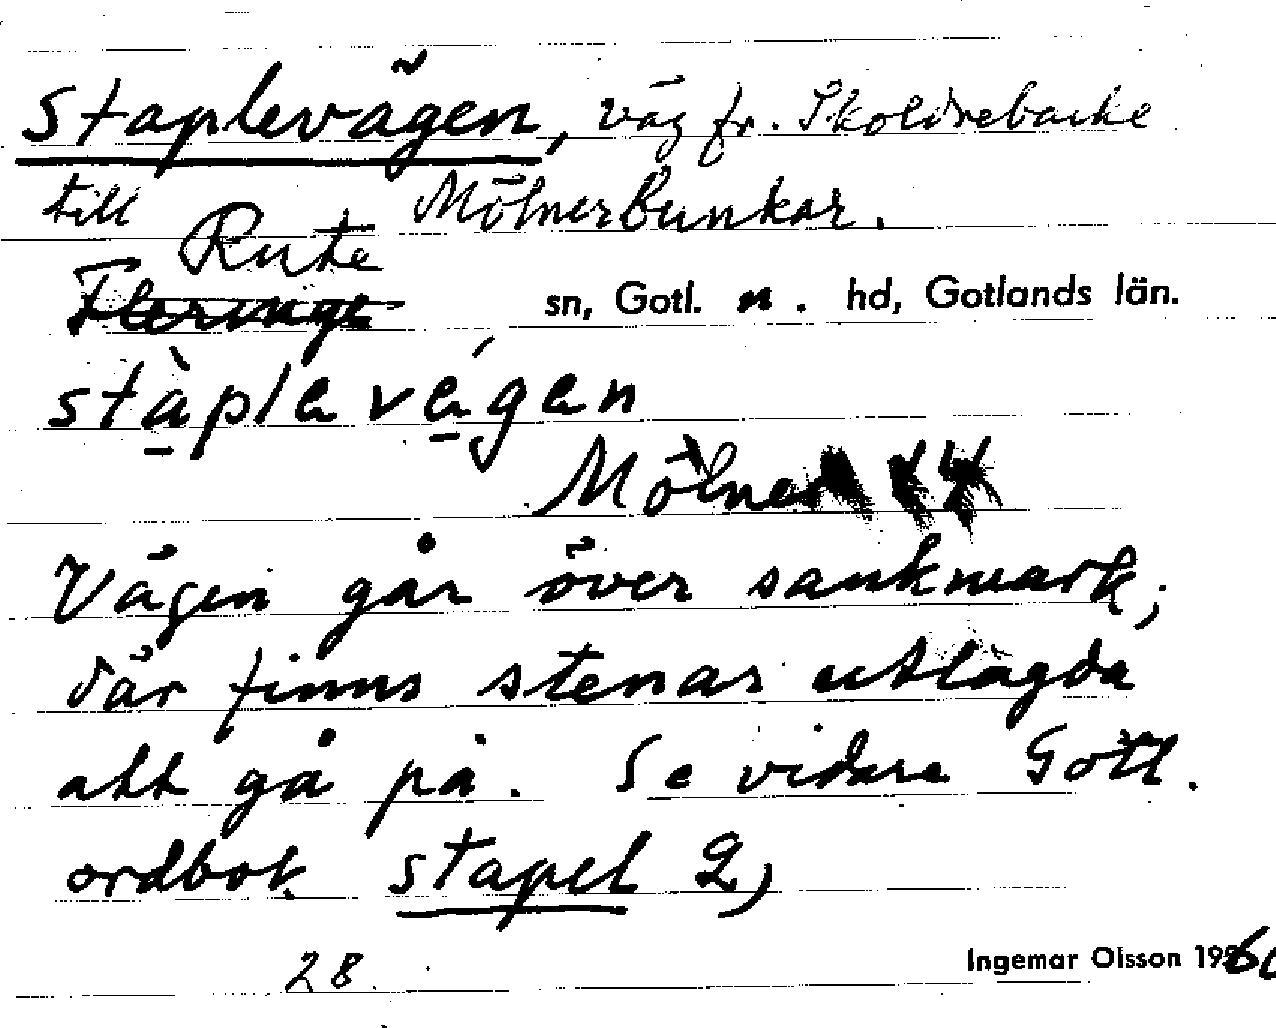 Staplevägen, väg fr. Skoldrebacke
till Mölnerbunkar.
Rute
Fleringe sn, Gotl. n. hd, Gotlands län.
stàplavégen
Mölner 14
Vägen går över sankmark;
där finns stenar utlagda
att gå på. Se vidare Gotl.
ordbok stapel 2)
28.
Ingemar Olsson 1960